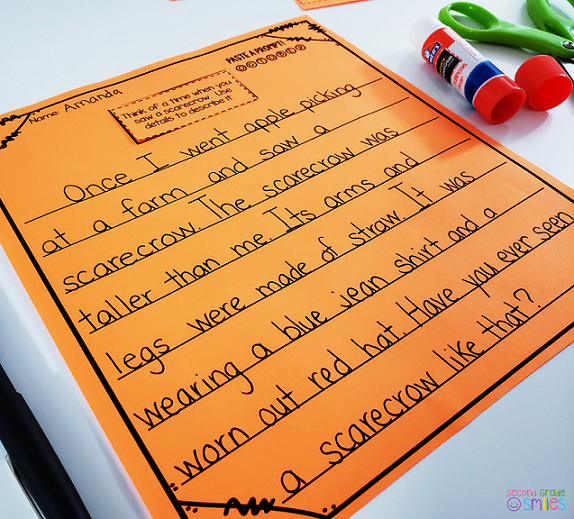 PASTE A PROMPT!
Name: Amanda
Think of a time when you
saw a scarecrow. Use
details to describe it.
Once I went apple picking
at a farm and saw a
scarecrow. The scarecrow was
taller than me. Its arms and
legs were made of straw. It was
wearing a blue jean shirt and a
worn out red hat. Have you ever seen
a scarecrow like that?
Elmer's
SECOND GRADE
SMILES